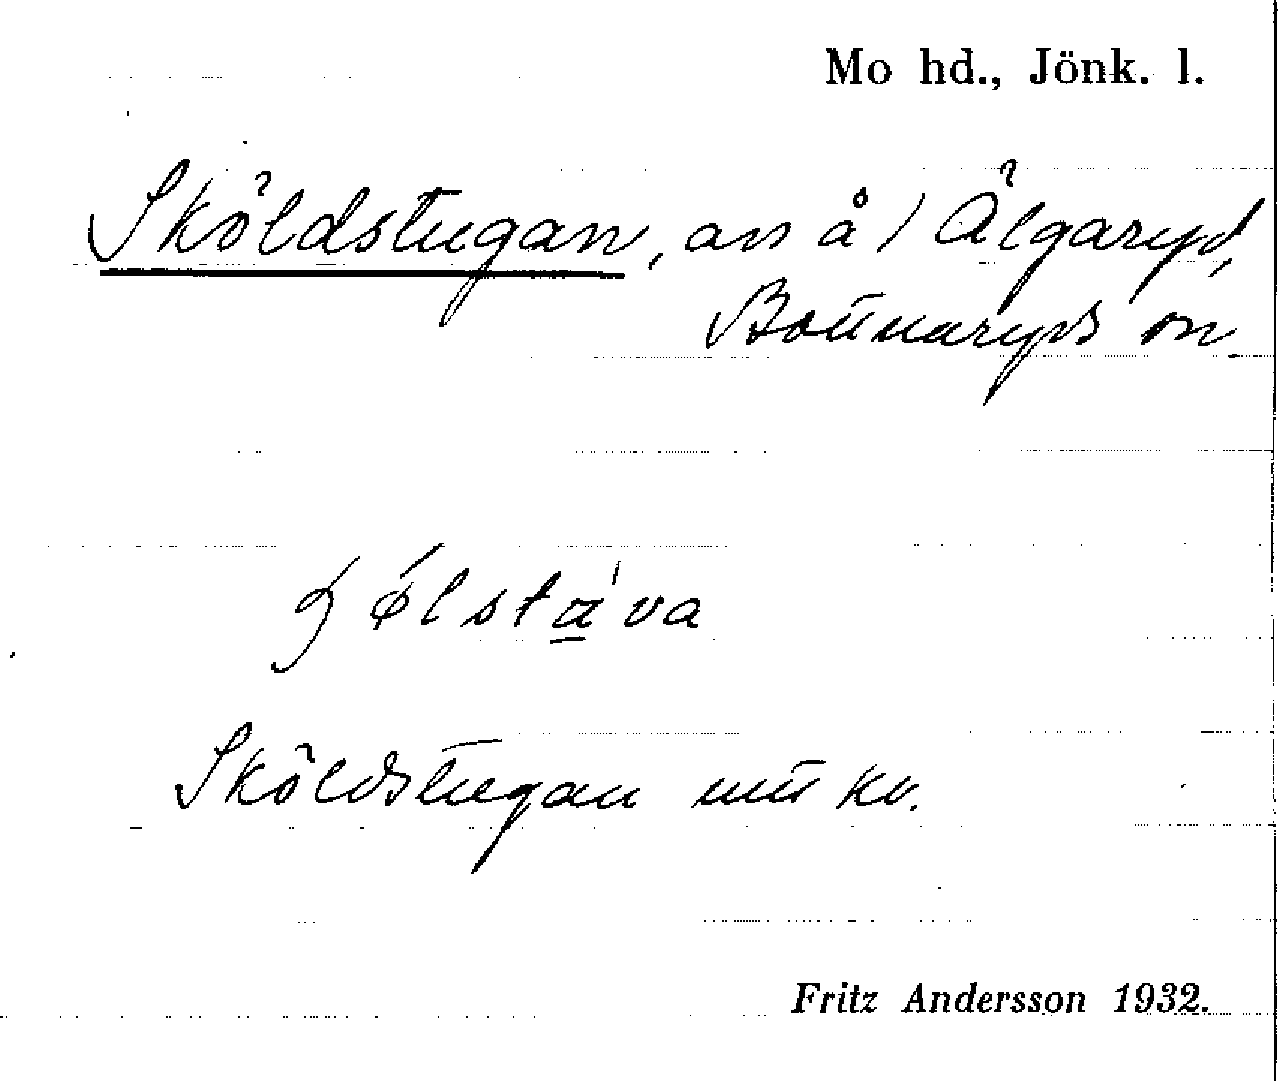 Mo hd., Jönk. l.
Sköldstugan, an å / Älgaryd,
Bottnaryds sn
Sköldstugan mtt kv.
Fritz Andersson 1932.